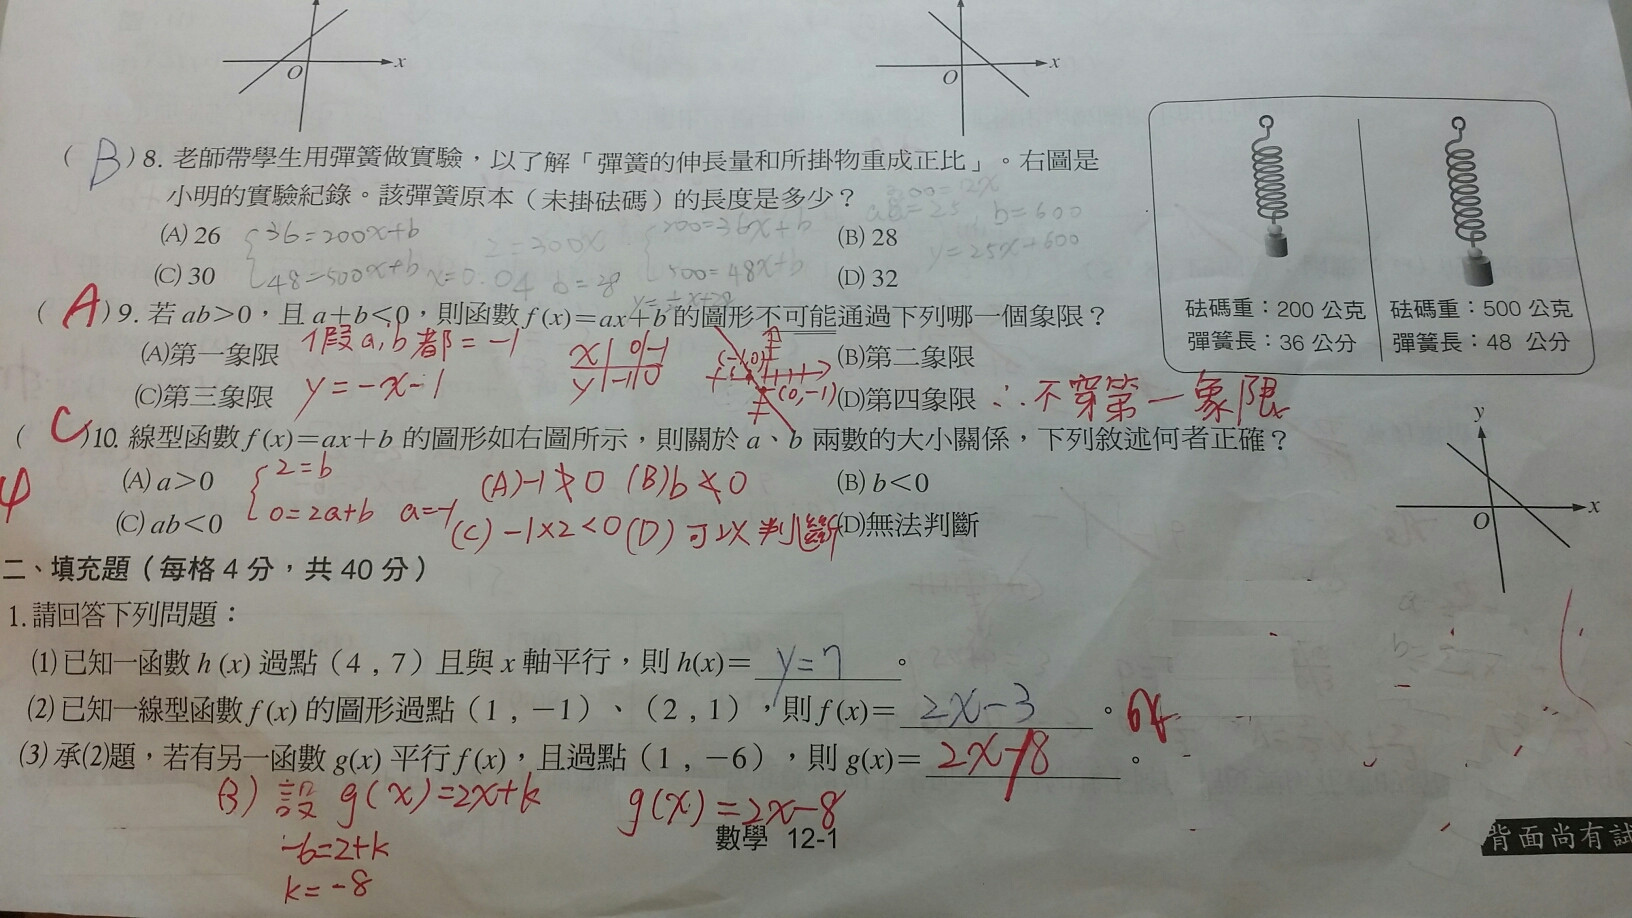 O x
O x
( B ) 8. 老師帶學生用彈簧做實驗，以了解「彈簧的伸長量和所掛物重成正比」。右圖是
小明的實驗紀錄。該彈簧原本（未掛砝碼）的長度是多少？
300=12x
a=25, b=600
(A) 26 36=200x+b 2=300x 200=36x+b (B) 28 y=25x+600
(C) 30 48=500x+b x=0.04 b=28 500=48x+b (D) 32
砝碼重：200 公克
彈簧長：36 公分
砝碼重：500 公克
彈簧長：48 公分
( A ) 9. 若 ab>0，且 a+b<0，則函數 f(x)=ax+b 的圖形不可能通過下列哪一個象限？
(A)第一象限 假a,b都=-1 x 0 -1 (-1,0) (B)第二象限
(C)第三象限 y=-x-1 y -1 0 (0,-1) (D)第四象限 ∴不穿第一象限
( C ) 10. 線型函數 f(x)=ax+b 的圖形如右圖所示，則關於 a、b 兩數的大小關係，下列敘述何者正確？
(A) a>0 2=b (A)-1≯0 (B)b≮0 (B) b<0
(C) ab<0 0=2a+b a=-1 (C) -1×2<0 (D) 可以判斷 (D)無法判斷
y
O x
二、填充題（每格 4 分，共 40 分）
1. 請回答下列問題：
(1) 已知一函數 h (x) 過點（4 , 7）且與 x 軸平行，則 h(x)= y=7 。
(2) 已知一線型函數 f (x) 的圖形過點（1 , −1）、（2 , 1），則 f(x)= 2x-3 。
(3) 承(2)題，若有另一函數 g(x) 平行 f(x)，且過點（1 , −6），則 g(x)= 2x-8 。
(3) 設 g(x)=2x+k g(x)=2x-8
-6=2+k
k=-8
數學 12-1
背面尚有試